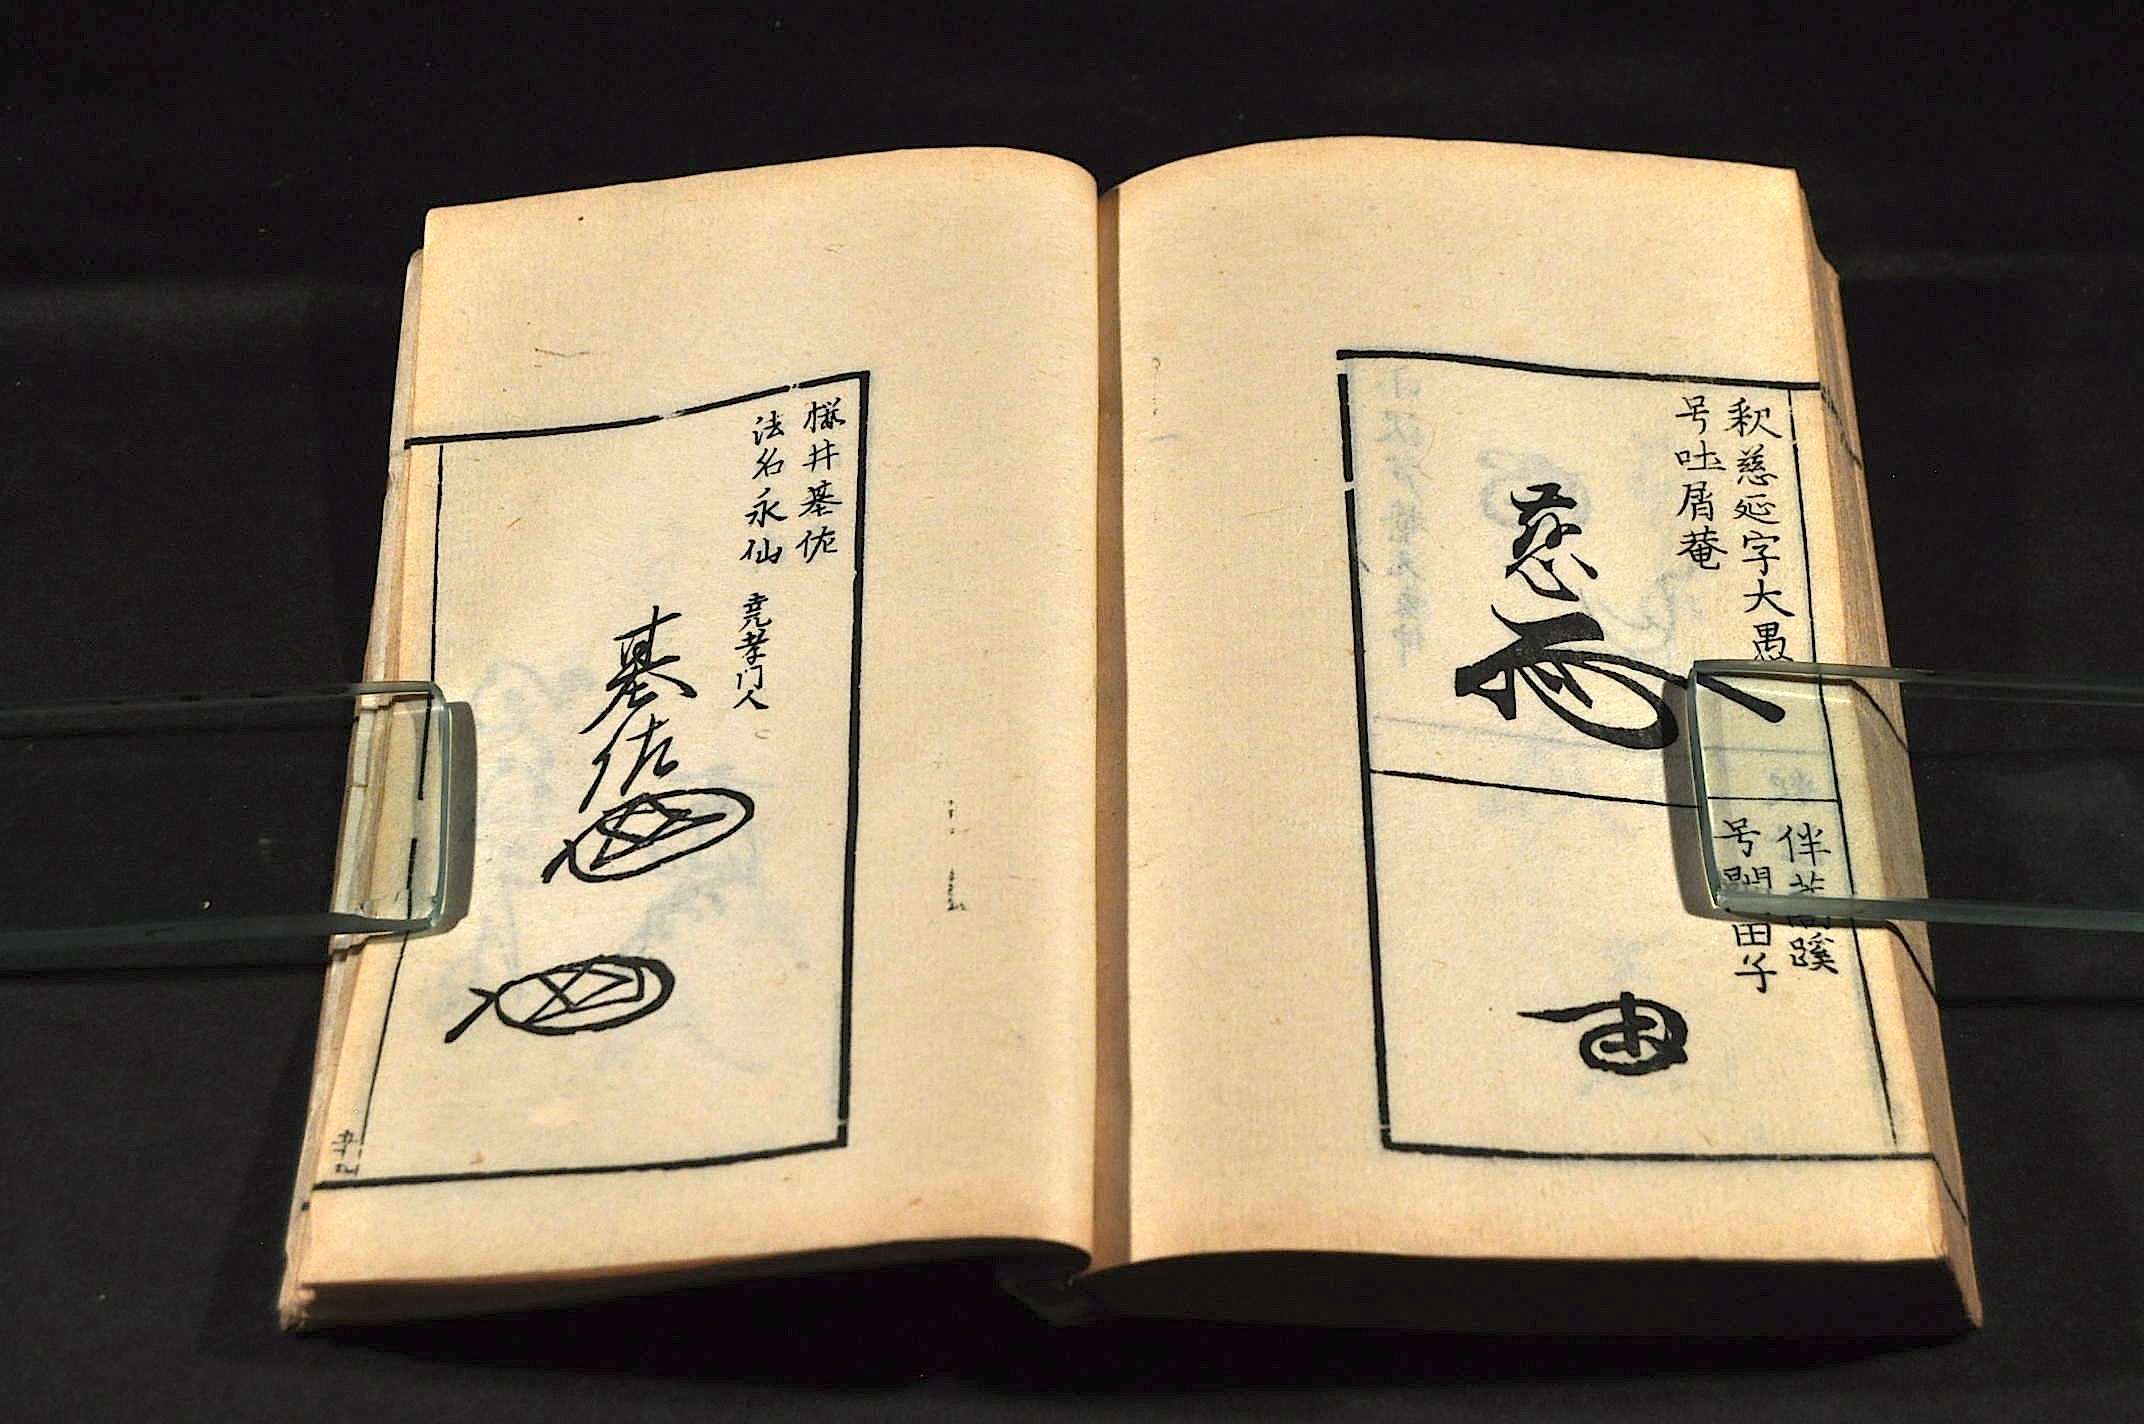 釈慈延字大愚
号吐屑菴
慈延
伴蒿蹊
号閑田子
櫻井基佐
法名永仙 尭孝门人
基佐